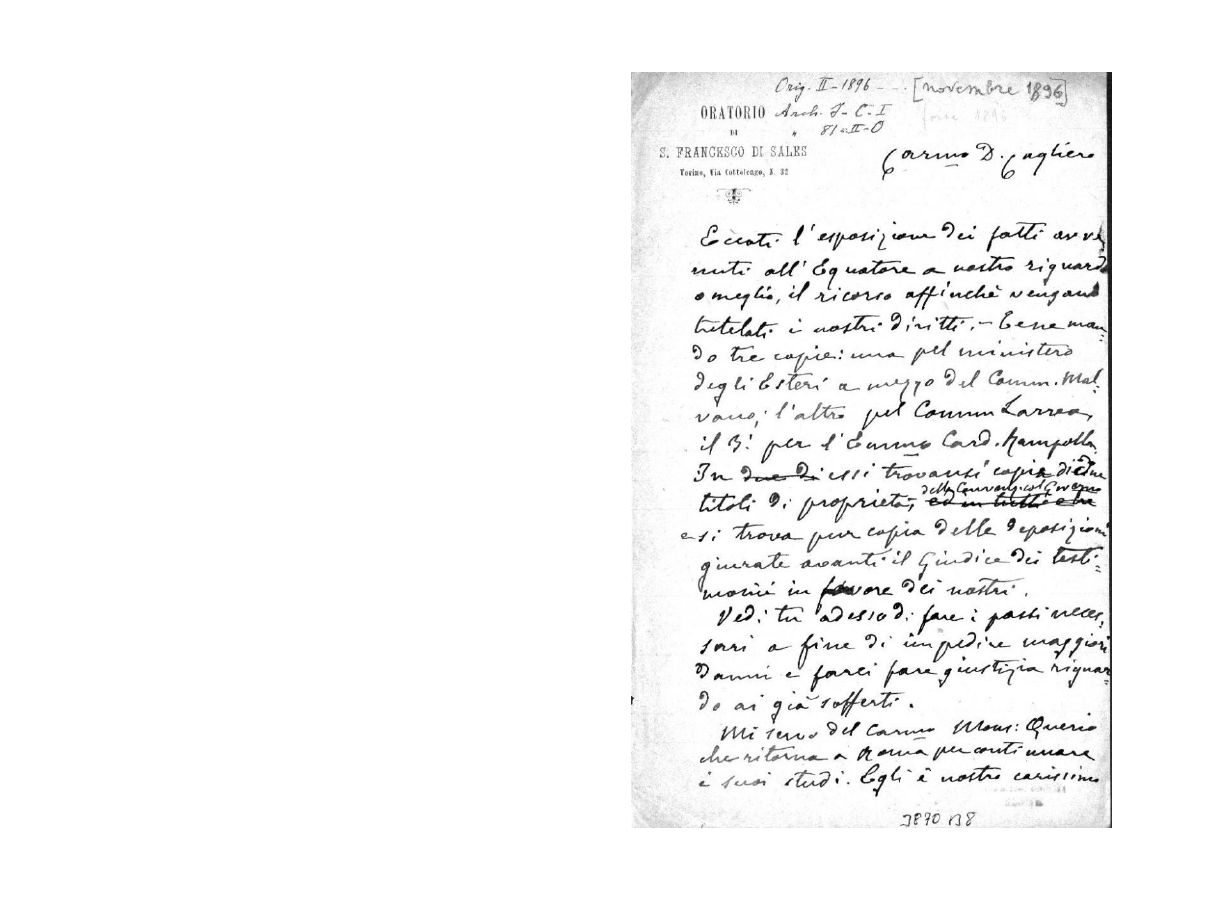 Orig. II-1896 - - . [novembre 1896]
ORATORIO Arch. I-C-I forse 1896
DI " 81-II-O
S. FRANCESCO DI SALES
Torino, Via Cottolengo, N. 32
Carmo D. Cagliero
Eccoti l'esposizione dei fatti avve
nuti all'Equatore a nostro riguardo
o meglio, il ricorso affinchè vengano
tutelati i nostri diritti. - Te ne man=
do tre copie: una pel ministero
degli Esteri a mezzo del Comm. Mal=
vano; l'altro pel Comm Larrea,
il 3.° per l'Emmo Card. Rampolla.
In due di essi trovansi copia di due
titoli di proprietà, della Convenz. col Governo ed in tutti e tre
e si trova pur copia delle deposizioni
giurate avanti il Giudice dei testi=
monii in favore dei nostri.
Vedi tu adesso di fare i passi neces=
sari a fine di impedire maggiori
danni e farci fare giustizia riguar=
do ai già sofferti.
Mi servo del Carmo Mons: 
che ritorna a Roma per continuare
i suoi studi. Egli è nostro carissimo
3870 B8